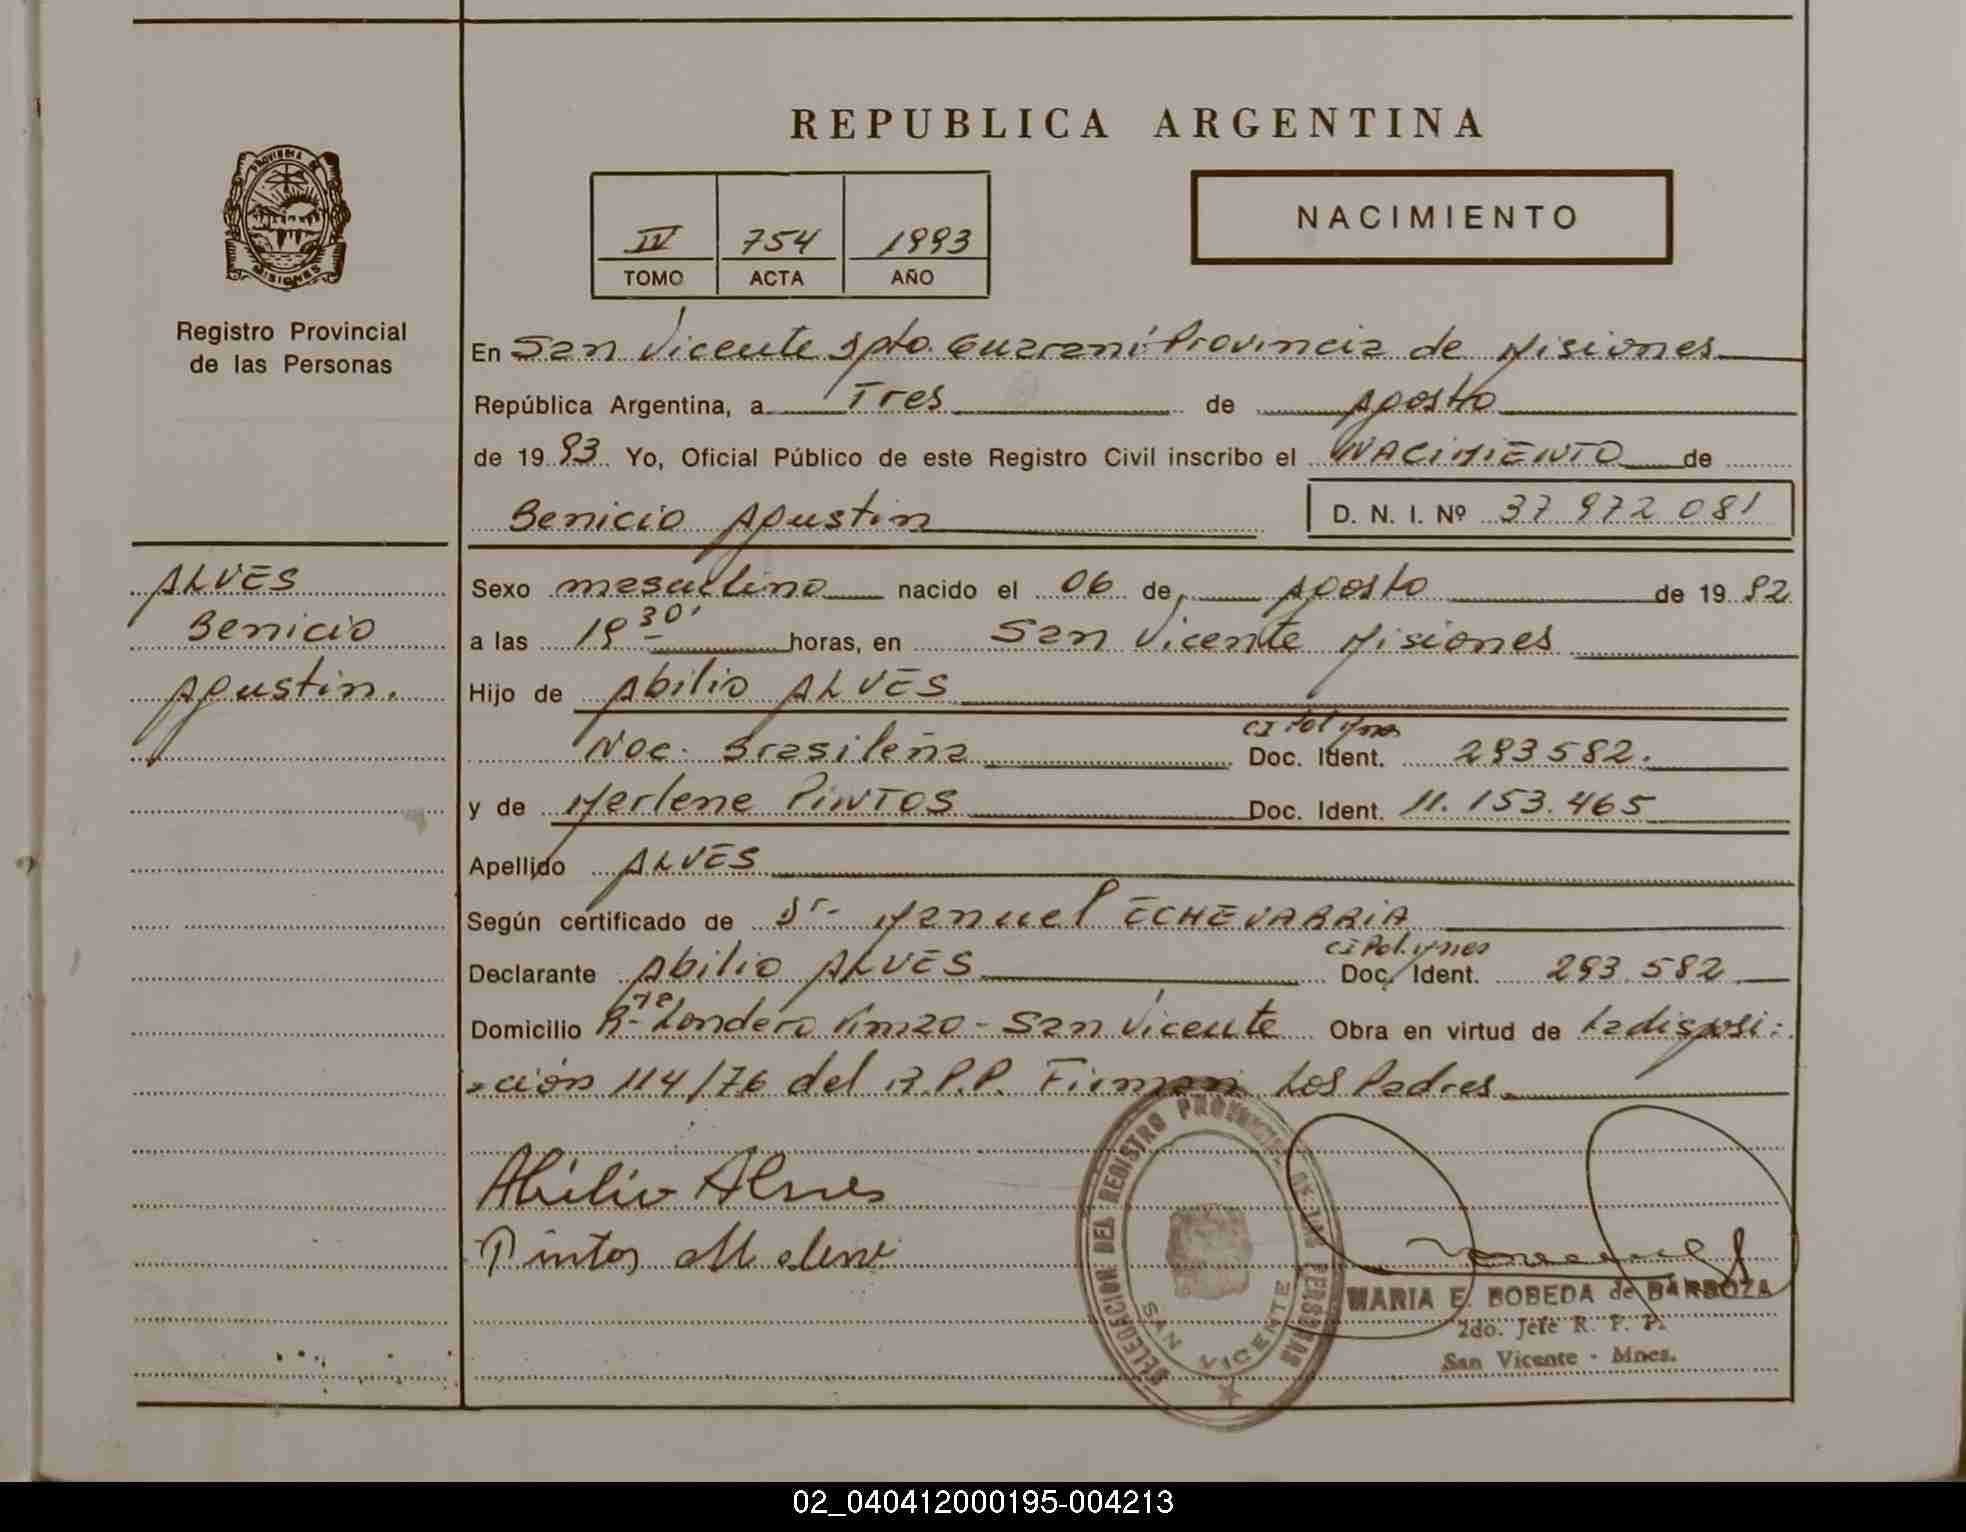 REPUBLICA ARGENTINA
IV 754 1993
TOMO ACTA AÑO
NACIMIENTO
PROVINCIA DE
MISIONES
Registro Provincial
de las Personas
En San Vicente Dpto. Guaraní Provincia de Misiones
República Argentina, a Tres de Agosto
de 19 93 Yo, Oficial Público de este Registro Civil inscribo el NACIMIENTO de
Benicio Agustin D. N. I. Nº 37 972 081
ALVES
Benicio
Agustin.
Sexo masculino nacido el 06 de Agosto de 19 92
a las 19 30' horas, en San Vicente Misiones
Hijo de Abilio ALVES
Nac. Brasileña CI Pol Mnes Doc. Ident. 293582.
y de Marlene PINTOS Doc. Ident. 11.153.465
Apellido ALVES
Según certificado de Dr. Manuel ECHEVARRIA
Declarante Abilio ALVES CI Pol. Mnes Doc. Ident. 293.582
Domicilio Londero San Vicente Obra en virtud de La disposi-
-ción 114/76 del R.P.P. Firman Los Padres.
Abilio Alves
Pintos
DELEGACION DEL REGISTRO PROVINCIAL DE LAS PERSONAS
SAN VICENTE
MARIA E. BOBEDA de BARBOZA
2do. Jefe R. P. P.
San Vicente - Mnes.
02_040412000195-004213